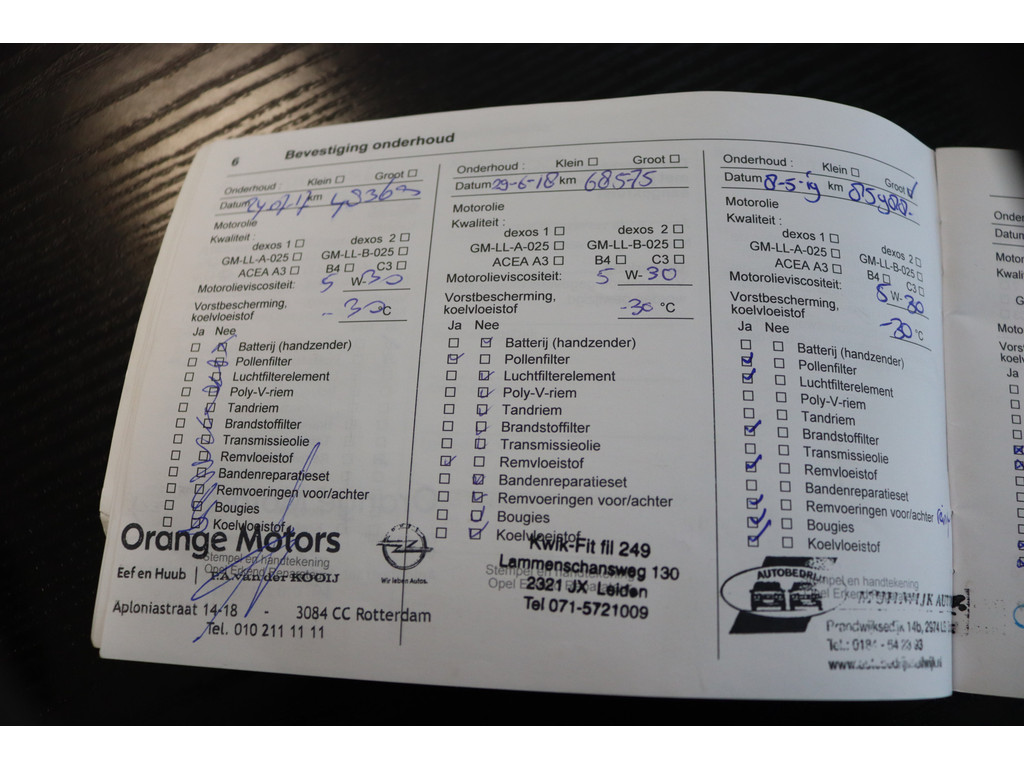 6 Bevestiging onderhoud
Onderhoud : Klein Groot
Datum 24-07-17 km 49369
Motorolie
Kwaliteit :
dexos 1 dexos 2
GM-LL-A-025 GM-LL-B-025
ACEA A3 B4 C3
Motorolieviscositeit: 5 W-30
Vorstbescherming,
koelvloeistof -30 °C
Ja Nee
Batterij (handzender)
Pollenfilter
Luchtfilterelement
Poly-V-riem
Tandriem
Brandstoffilter
Transmissieolie
Remvloeistof
Bandenreparatieset
Remvoeringen voor/achter
Bougies
Koelvloeistof
Orange Motors
Stempel en handtekening
Eef en Huub | P.A. van der KOOIJ
Wir leben Autos.
Aploniastraat 14-18 - 3084 CC Rotterdam
Tel. 010 211 11 11
Onderhoud : Klein Groot
Datum 29-6-18 km 68575
Motorolie
Kwaliteit :
dexos 1 dexos 2
GM-LL-A-025 GM-LL-B-025
ACEA A3 B4 C3
Motorolieviscositeit: 5 W-30
Vorstbescherming,
koelvloeistof -30 °C
Ja Nee
Batterij (handzender)
Pollenfilter
Luchtfilterelement
Poly-V-riem
Tandriem
Brandstoffilter
Transmissieolie
Remvloeistof
Bandenreparatieset
Remvoeringen voor/achter
Bougies
Koelvloeistof
Kwik-Fit fil 249
Stempel en handtekening
Lammenschansweg 130
Opel Er
2321 JX Leiden
Tel 071-5721009
Onderhoud : Klein Groot
Datum 8-5-19 km
Motorolie
Kwaliteit :
dexos 1 dexos 2
GM-LL-A-025 GM-LL-B-025
ACEA A3 B4 C3
Motorolieviscositeit: 5 W-30
Vorstbescherming,
koelvloeistof -30 °C
Ja Nee
Batterij (handzender)
Pollenfilter
Luchtfilterelement
Poly-V-riem
Tandriem
Brandstoffilter
Transmissieolie
Remvloeistof
Bandenreparatieset
Remvoeringen voor/achter
Bougies
Koelvloeistof
AUTOBEDRIJ
pel en handtekening